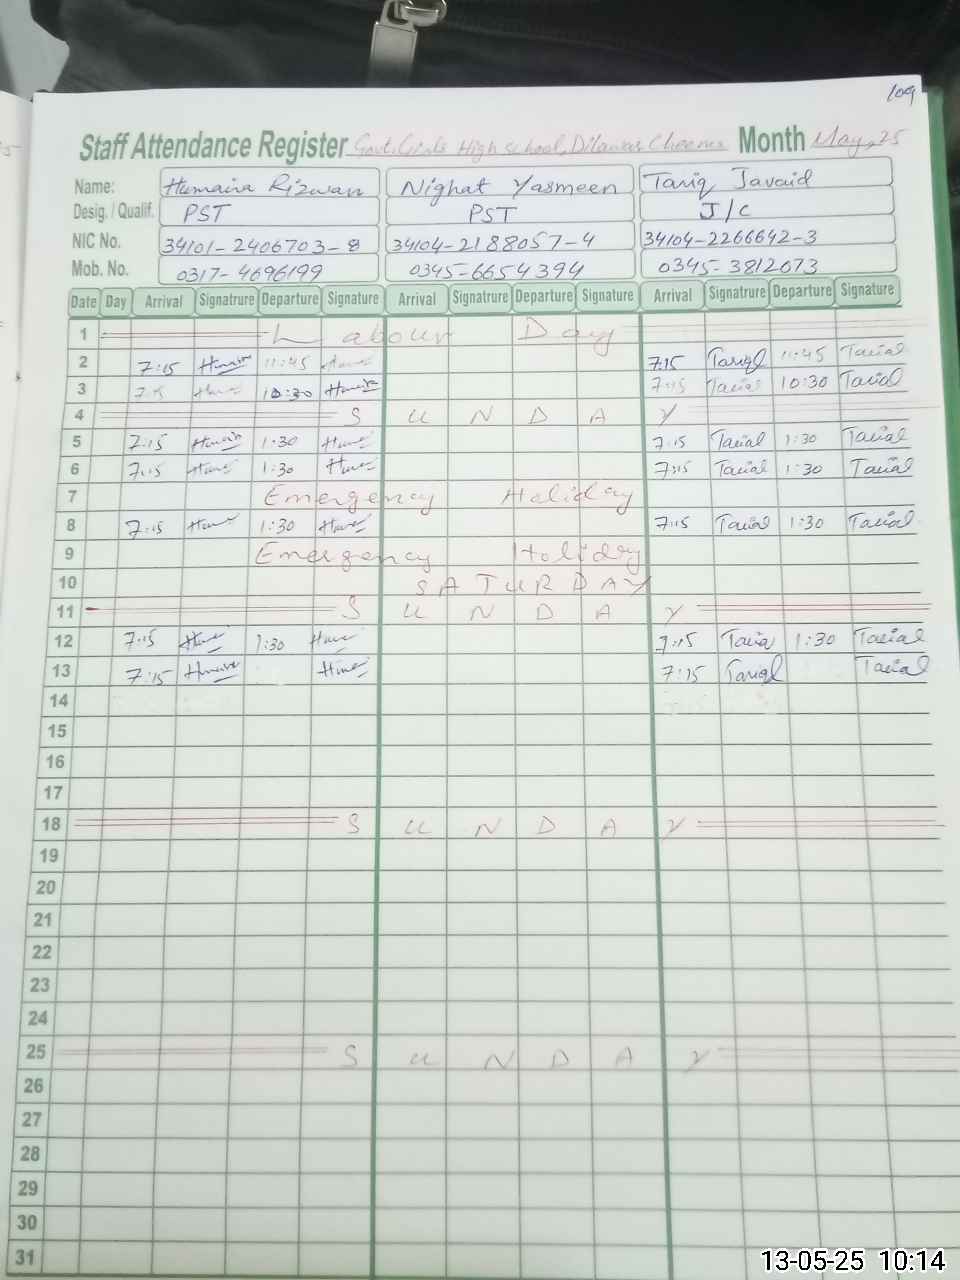 109
Staff Attendance Register Govt. Girls High School, Dilawar Cheema Month May, 25
Name: Humaira Rizwan Nighat Yasmeen Tariq Javaid
Desig. / Qualif. PST PST J/C
NIC No. 34101-2406703-8 34104-2188057-4 34104-2266642-3
Mob. No. 0317-4696199 0345-6654394 0345-3812673
Date Day Arrival Signatrure Departure Signature Arrival Signatrure Departure Signature Arrival Signatrure Departure Signature
1 Labour Day
2 7:15 11:45 7:15 11:45
3 7:15 10:30 7:15 10:30
4 S U N D A Y
5 7:15 1:30 7:15 1:30
6 7:15 1:30 7:15 1:30
7 Emergency Holiday
8 7:15 1:30 7:15 1:30
9 Emergency Holiday
10 S A T U R D A Y
11 S U N D A Y
12 7:15 1:30 7:15 1:30
13 7:15 7:15
14
15
16
17
18 S U N D A Y
19
20
21
22
23
24
25 S U N D A Y
26
27
28
29
30
31
13-05-25 10:14